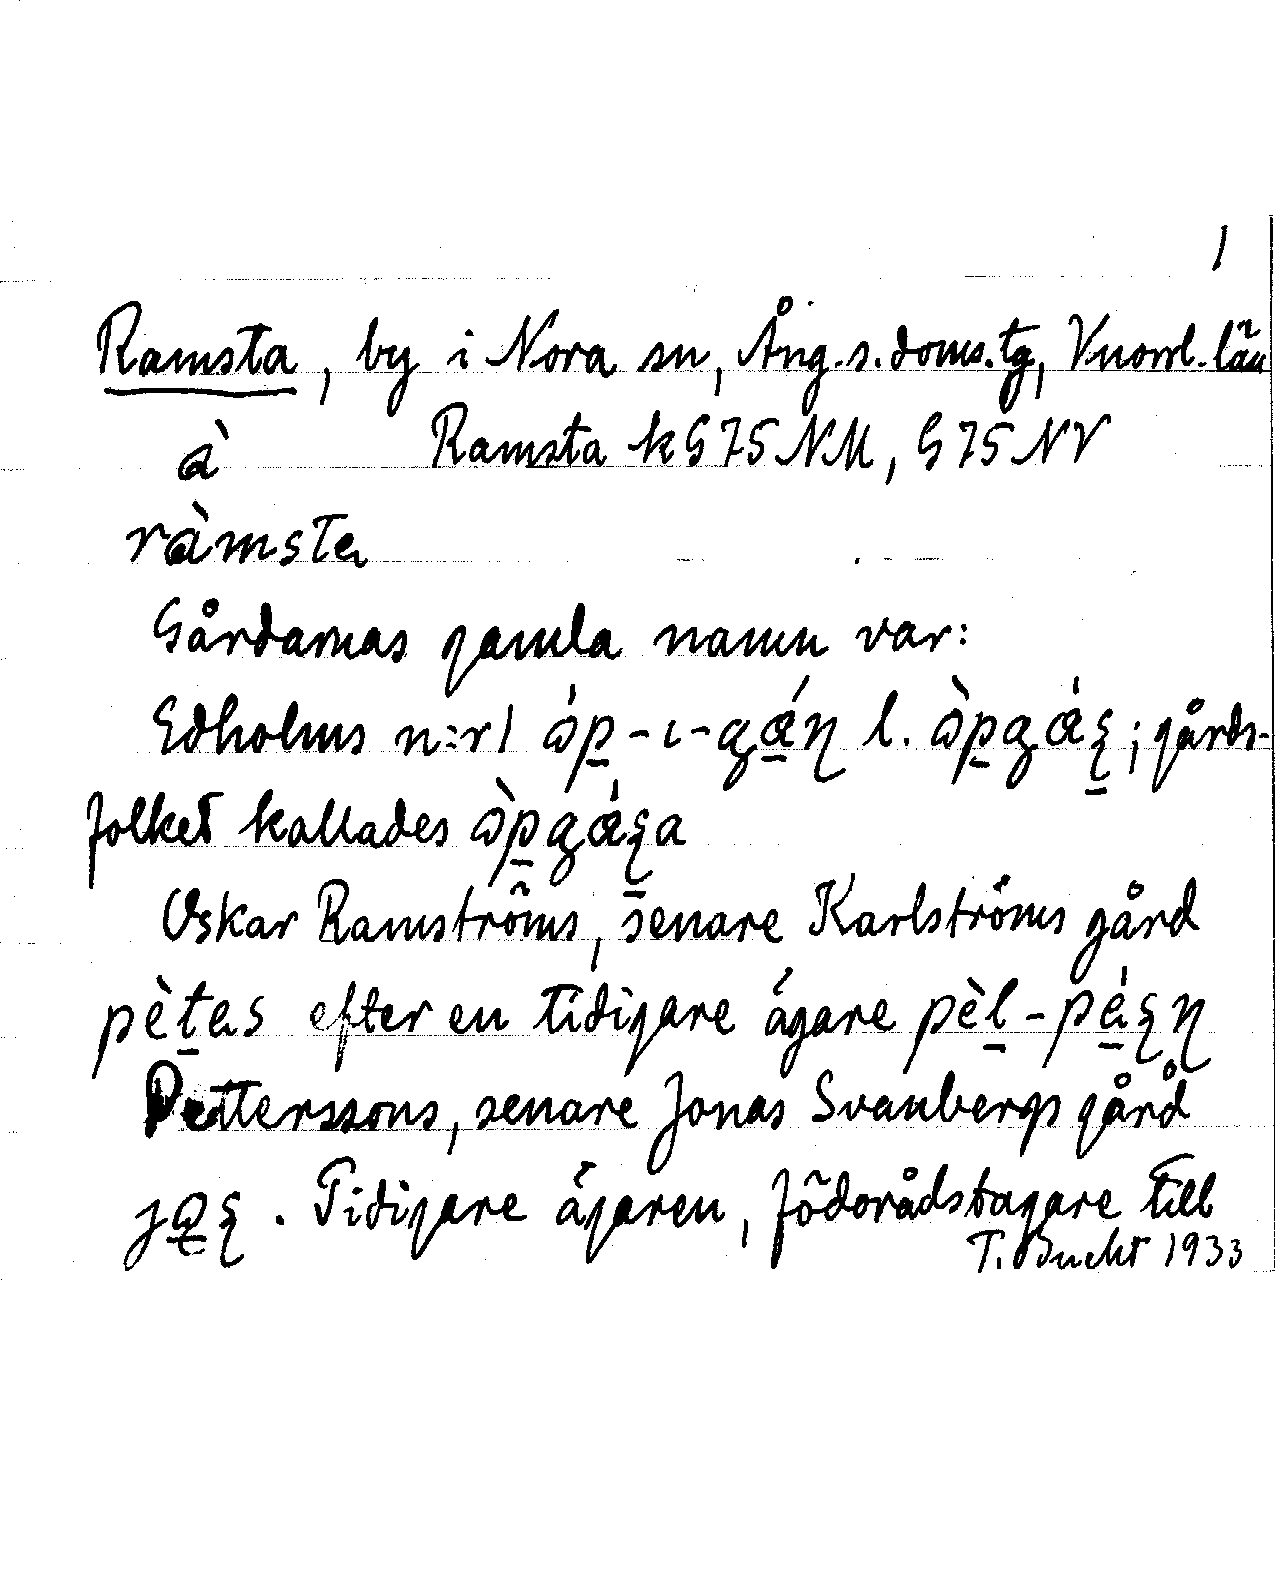 1
Ramsta, by i Nora sn, Ång.s.doms.tg, Vnorrl. län
à Ramsta k G75NM, G75NV
ràmsta
Gårdarnas gamla namn var:
Edholms n:r 1 l. ; gårds-
folket kallades
Oskar Ramströms, senare Karlströms gård
pètas efter en tidigare ägare pèl-
Petterssons, senare Jonas Svanbergs gård
. Tidigare ägaren, födorådstagare till
T. Bucht 1933